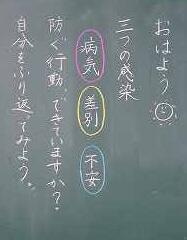 おはよう
三つの感染
病気 差別 不安
防ぐ行動、できていますか?
自分をふり返ってみよう。